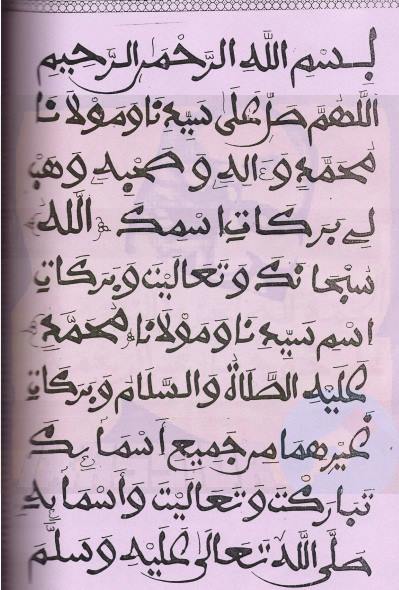 بِسْمِ اللَّهِ الرَّحْمَٰنِ الرَّحِيمِ
اللَّهُمَّ صَلِّ عَلَى سَيِّدِنَا وَمَوْلَانَا
مُحَمَّدٍ وَءَالِهِ وَصَحْبِهِ وَهَبْ
لِي بَرَكَاتِ اسْمِكَ ﴿اللَّهُ﴾
سُبْحَانَكَ وَتَعَالَيْتَ وَبَرَكَاتِ
اسْمِ سَيِّدِنَا وَمَوْلَانَا ﴿مُحَمَّدٍ﴾
عَلَيْهِ الصَّلَاةُ وَالسَّلَامُ وَبَرَكَاتِ
غَيْرِهِمَا مِن جَمِيعِ أَسْمَائِكَ
تَبَارَكْتَ وَتَعَالَيْتَ وَأَسْمَائِهِ
صَلَّى اللَّهُ تَعَالَى عَلَيْهِ وَسَلَّمَ